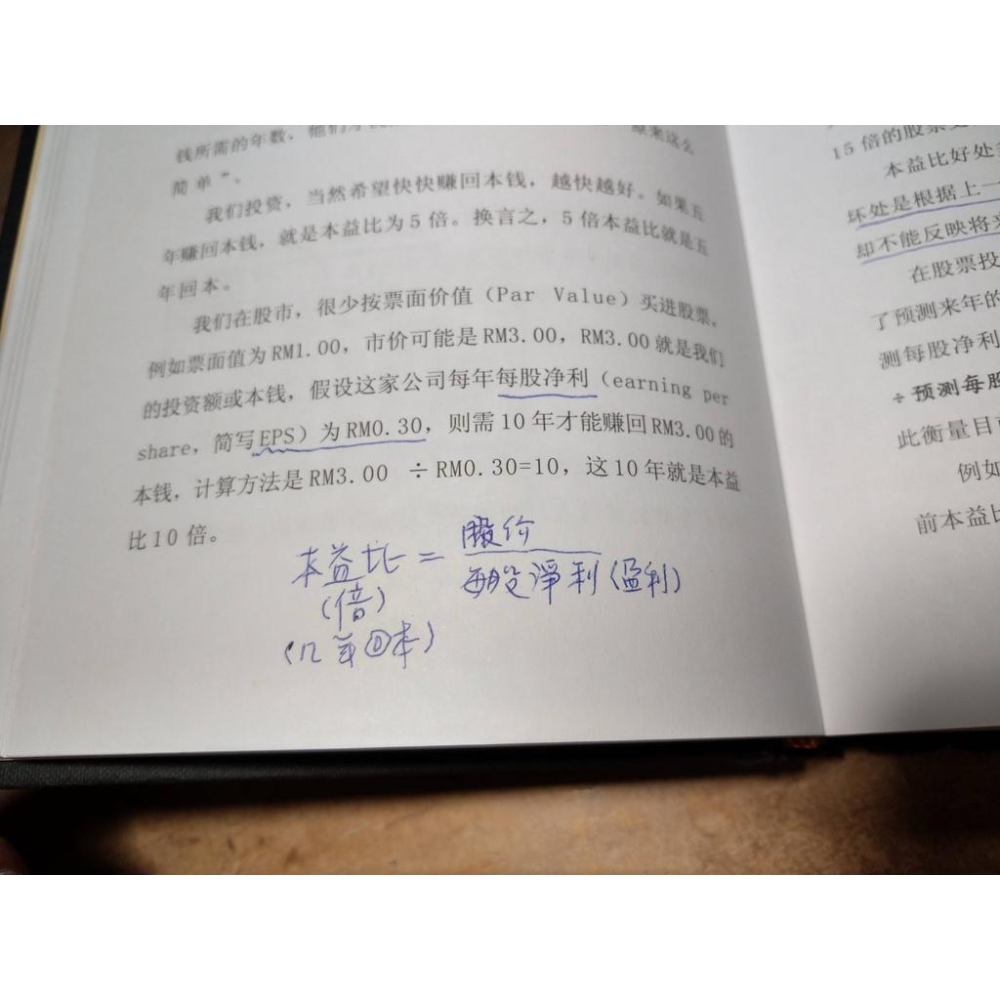 钱所需的年数，他们才
原来这么
简单”。
我们投资，当然希望快快赚回本钱，越快越好。如果五
年赚回本钱，就是本益比为5倍。换言之，5倍本益比就是五
年回本。
我们在股市，很少按票面价值（Par Value）买进股票，
例如票面值为RM1.00，市价可能是RM3.00，RM3.00就是我们
的投资额或本钱，假设这家公司每年每股净利（earning per
share，简写EPS）为RM0.30，则需10年才能赚回RM3.00的
本钱，计算方法是RM3.00 ÷RM0.30=10，这10年就是本益
比10倍。
本益比 = 股价
每股淨利(盈利)
(倍)
(几年回本)
15倍的股票
本益比好处
坏处是根据上一
却不能反映将
在股票投
了预测来年的
测每股净利
÷预测每股
此衡量目
例如
前本益比